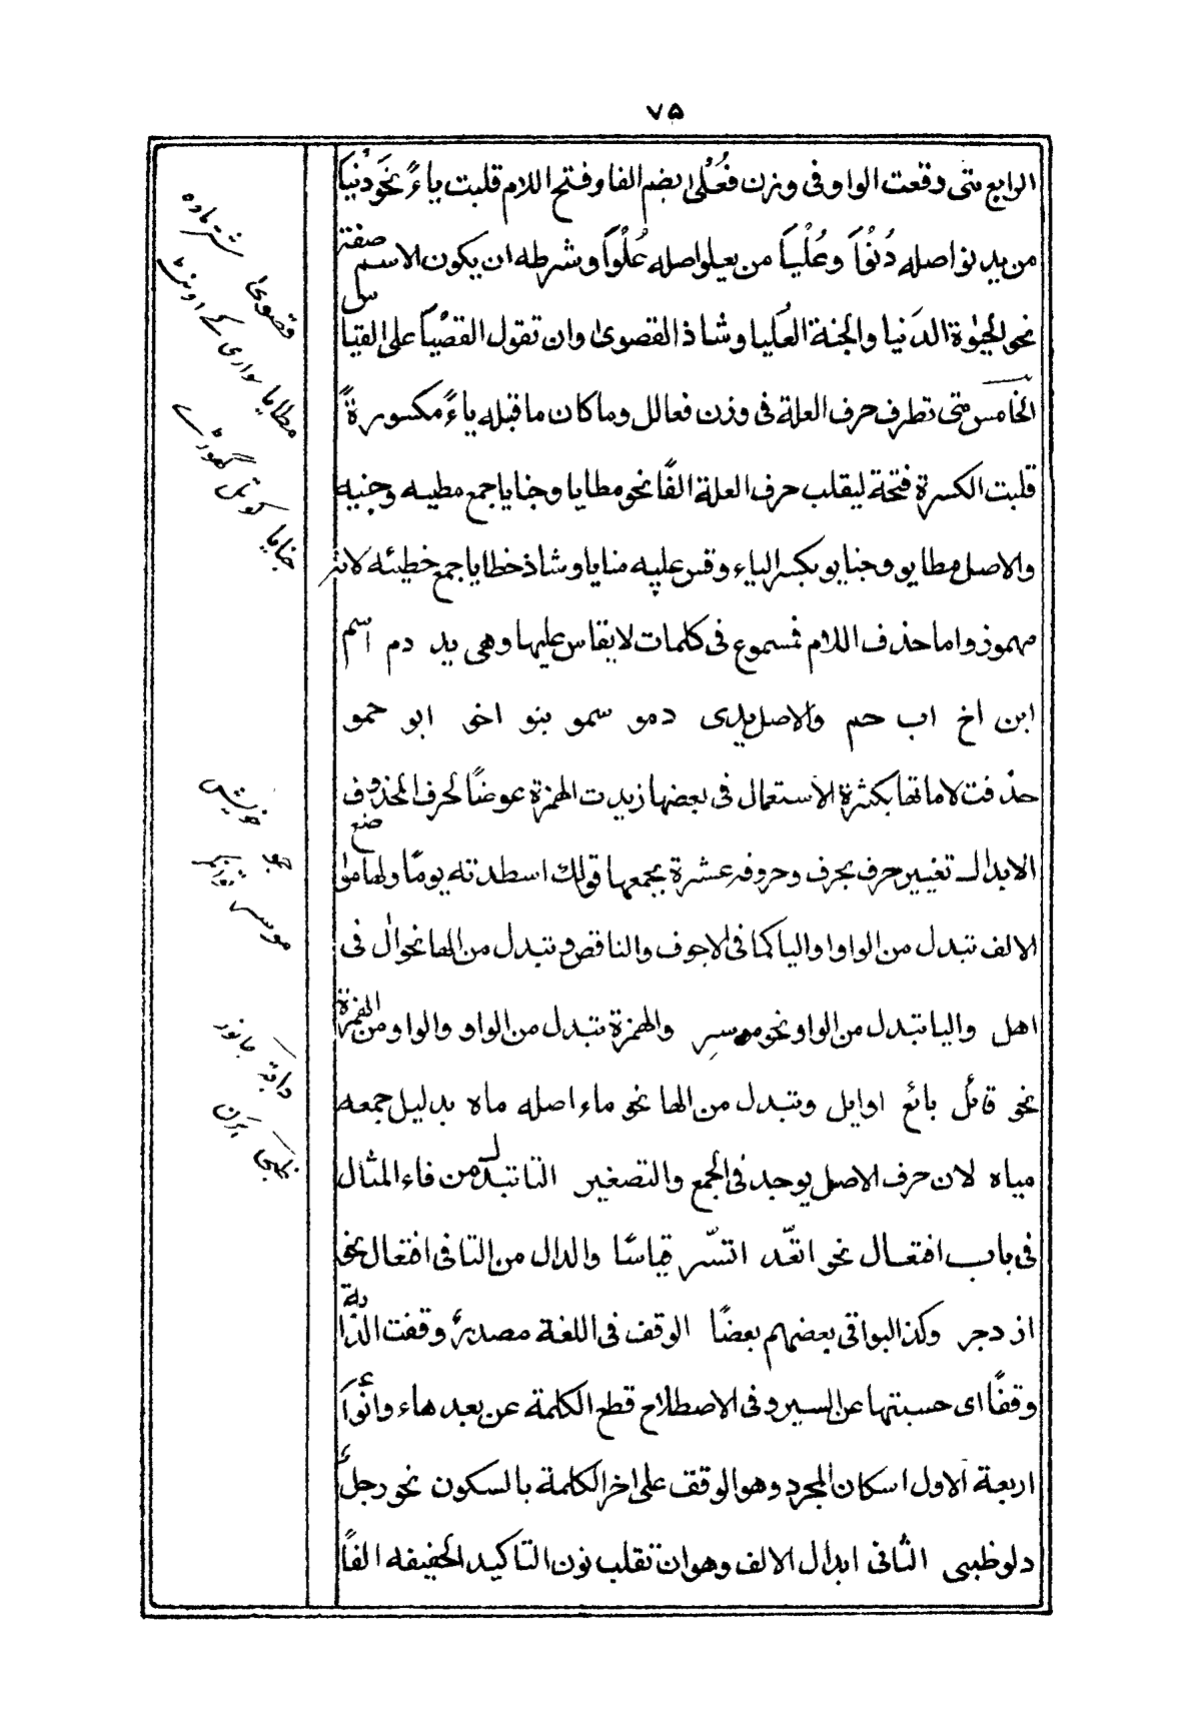 ٧۵
الرابع متى وقعت الواو فى وزن فُعْلىٰ بضم الفا وفتح اللام قلبت ياءً نحو دُنْيَا
من يدنو اصله دُنْوَا وعُلْيَا من يعلو اصله عُلْوَا وشرطه ان يكون الاسم صفة
نحو الحيٰوة الدنيا والجنة العُليا وشاذ القصوىٰ وان تقول القصْيَا على القيا س
الخامس متى تطرف حرف العلة فى وزن فعالل وما كان ما قبله ياءً مكسورةً
قلبت الكسرة فتحة ليقلب حرف العلة الفًا نحو مطايا وجنايا جمع مطيه وجنيه
والاصل مطايو وجنايو بكسر الياء وقس عليه منايا وشاذ خطايا جمع خطيئه لانه
مهموز واما حذف اللام فمسموع فى كلمات لا يقاس عليها وهى يد دم اسم
ابن اخ اب حم والاصل يدى دمو سمو بنو اخو ابو حمو
حذفت لاماتها بكثرة الاستعمال فى بعضها زيدت الهمزة عوضًا لحرف المحذوف
الابدال تغيير حرف بحرف وحروفه عشرة يجمعها قولك اسطدته يومًا ولها مواضع
الالف تبدل من الواو واليا كما فى الاجوف والناقص وتبدل من الها نحو اٰل فى
اهل واليا تبدل من الواو نحو موسر والهمزة تبدل من الواو والواو من الهمزة
نحو قائل بائع اوايل وتبدل من الها نحو ماء اصله ماه بدليل جمعه
مياه لان حرف الاصل يوجد فى الجمع والتصغير التا تبدل من فاء المثال
فى باب افتعال نحو اتّعد اتسّر قياسًا والدال من التا فى افتعال نحو
ازدجر وكذ البواقى بعضهم بعضًا الوقف فى اللغة مصدر وقفت الدّابة
وقفًا اى حسبتها عن السير وفى الاصطلاح قطع الكلمة عن بعدهاء وانواَ
اربعة الاول اسكان المجرد وهو الوقف على اخر الكلمة بالسكون نحو رجل
دلو ظبى الثانى ابدال الالف وهو ان تقلب نون التاكيد الخفيفه الفًا
قصوىٰ شتر ماده
مطايا سوارى كے اونٹ
جنايا كوتل گھوڑے
حمو خويش
موسر توانگر
دابة جانور
ظبى ہرن